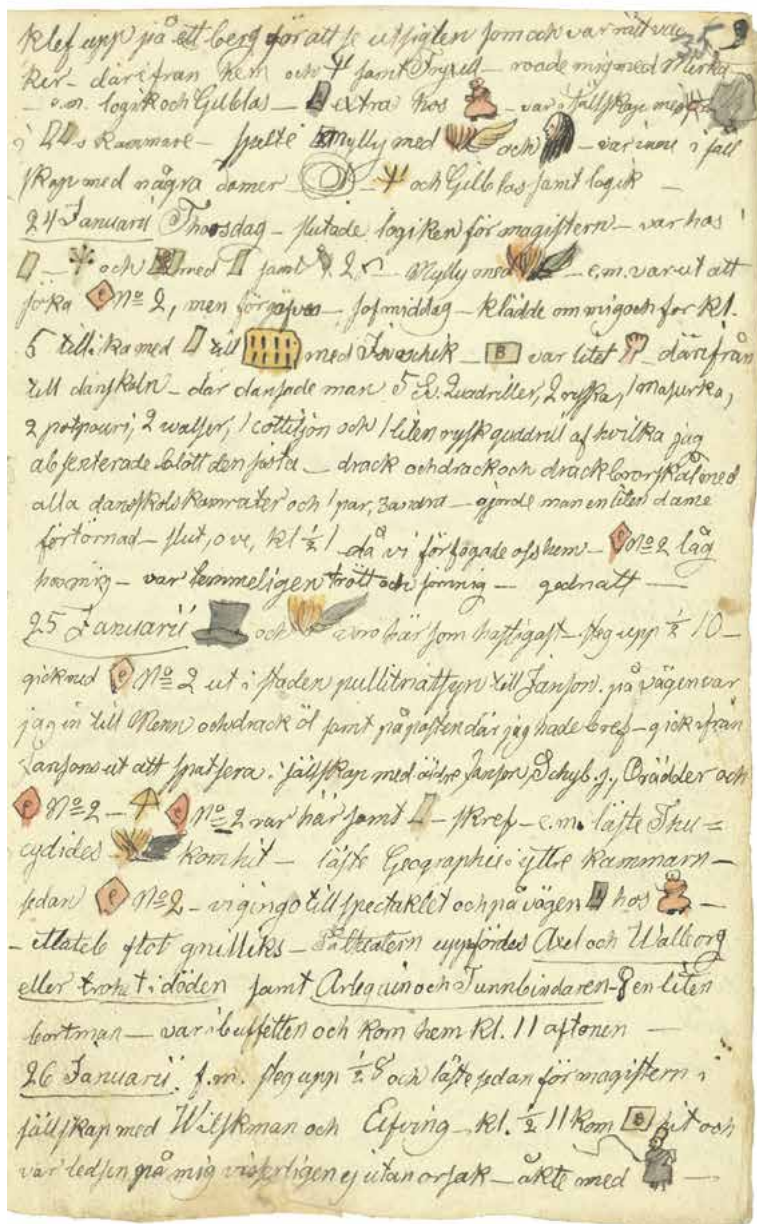 klef upp på ett berg för att se utsigten som ock var rätt vac 35
ker – därifrån hem och samt Fryxell – roade mig med Mirka
– e.m. logik och Gilblas – extra hos – var i sällskap med
i s kammare – spelte Mylly med och – var inne i säll
skap med några damer – och Gilblas samt logik –
24 Januarii Thorsdag – slutade logiken för magistern – var hos
– och med samt 2 – Mylly med – e.m. var ut att
söka № 2, men förgäfves – sof middag – klädde om mig och for kl.
5 tillika med till med Isvoschik – B var litet – därifrån
till dansskoln – där dansade man 5 Qvadriller, 2 ryska, 1 masurka,
2 potpouri, 2 walser, 1 cottiljon och 1 liten rysk quadrill af hvilka jag
absenterade blott den sista – drack och drack och drack brorskål med
alla dansskolskamrater och 1 par, 3 andra – gjorde man en liten dame
förtörnad – slut, o ve, kl ½ 1 då vi förfogade oss hem – e № 2 låg
hos mig – var temmeligen trött och sömnig – godnatt –
25 Januarii och voro här som hastigast – steg upp ½ 10 –
gick med e № 2 ut i staden till Janson. på vägen var
jag in till Menn och drack öl samt på posten där jag hade bref – gick ifrån
Jansons ut att spatsera i sällskap med äldre Janson, Schyb. j., Orädder och
e № 2 – e № 2 var här samt – skref – e.m. läste Thu=
cydides – kom hit – läste Geographie i yttre kammarn –
sedan e № 2 – vi gingo till spectaklet och på vägen hos –
– etlateb flot gnilliks – På theatern uppfördes Axel och Walborg
eller trohet i döden samt Arlequin och Tunnbindaren – 8 en liten
bortman – var i buffetten och kom hem kl. 11 aftonen –
26 Januarii. f.m. steg upp ½ 8 och läste sedan för magistern i
sällskap med Wilskman och Elfving – kl. ½ 11 kom B hit och
var ledsen på mig visserligen ej utan orsak – åkte med –